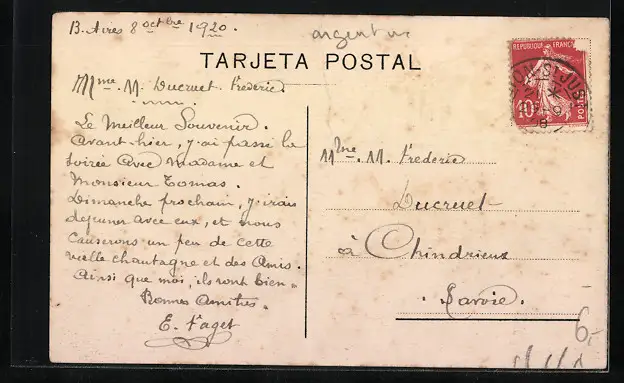 B. Aires 8 octbre 1920.
argentine
TARJETA POSTAL
Mme. M. Ducruet Frederic.
Le Meilleur Souvenir.
Avant-hier, j'ai passé la
soirée avec Madame et
Monsieur Tomas.
Dimanche prochain, j'irais
dejeuner avec eux, et nous
Causerons un peu de cette
vielle chautagne et des Amis.
Ainsi que moi, ils vont bien
Bonnes Amitiés.
E. Faget
REPUBLIQUE FRANC
10c
POSTES
Mme. M. Frederic
Ducruet
à Chindrieux
Savoie.
6,-